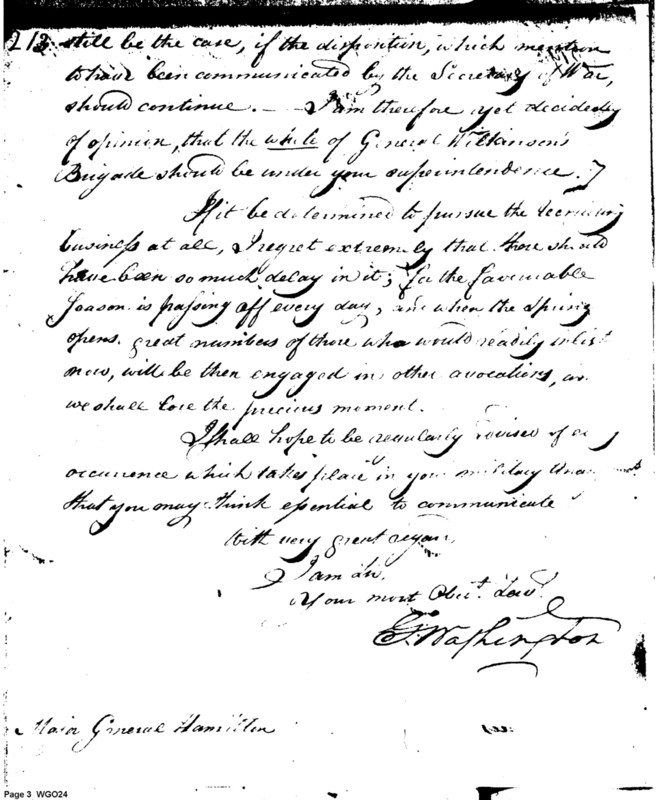 213 still be the case, if the disposition, which mention
to have been communicated by the Secretary of War,
should continue. — I am therefore yet decidedly
of opinion, that the white of General Wilkinson's
Brigade should be under your superintendence.
If it be determined to pursue the recruiting
business at all, I regret extremely that there should
have been so much delay in it; for the favourable
season is passing off every day, and when the Spring
opens great numbers of those who would readily inlist
now, will be then engaged in other avocations, an
we shall lose the precious moment.
I shall hope to be regularly advised of
occurrence which takes place in your military
that you may think essential to communicate
With very great regard,
I am &c.
Your most Obedt. Servt.
G. Washington
Major General Hamilton
Page 3 WGO24